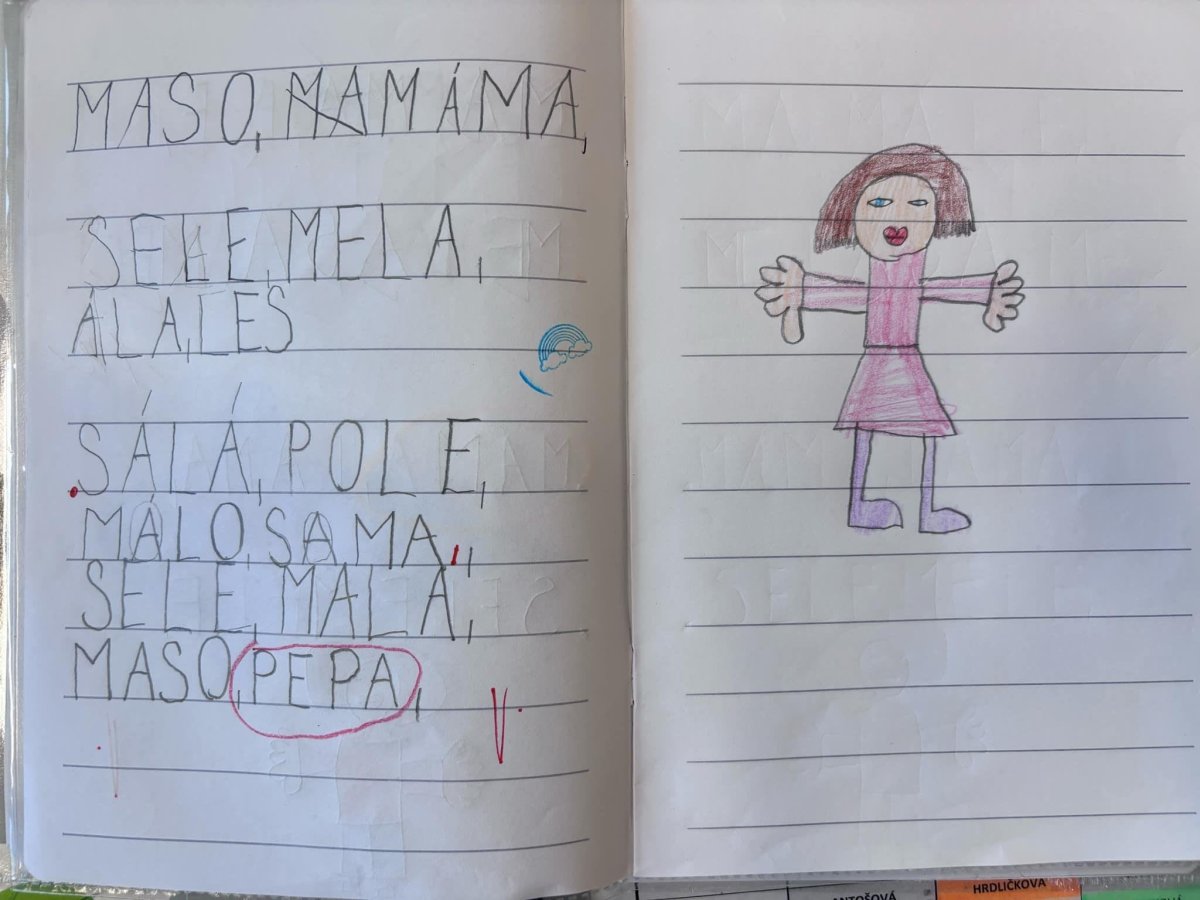 MASO, MÁMA,
SELE, MELA,
ALA, LES
SÁLÁ, POLE,
MÁLO, SAMA,
SELE, MALA,
MASO, PEPA,
HRDLIČKOVÁ